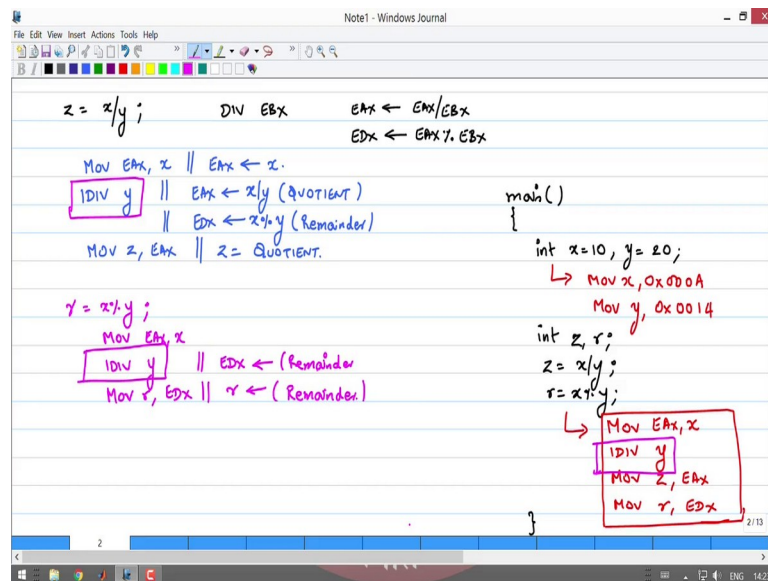 Note1 - Windows Journal
File Edit View Insert Actions Tools Help
z = x/y ;
DIV EBX
EAX ← EAX/EBX
EDX ← EAX % EBX
Mov EAX, x || EAX ← x.
IDIV y || EAX ← x/y (QUOTIENT)
|| EDX ← x%y (Remainder)
MOV z, EAX || z = QUOTIENT.
r = x%y ;
Mov EAX, x
IDIV y || EDX ← (Remainder
Mov r, EDX || r ← (Remainder.)
main()
{
int x=10, y=20;
↳ Mov x, 0x000A
Mov y, 0x0014
int z, r;
z = x/y ;
r = x%y ;
↳ Mov EAX, x
IDIV y
MOV z, EAX
MOV r, EDX
}
2/13
2
ENG 14:2